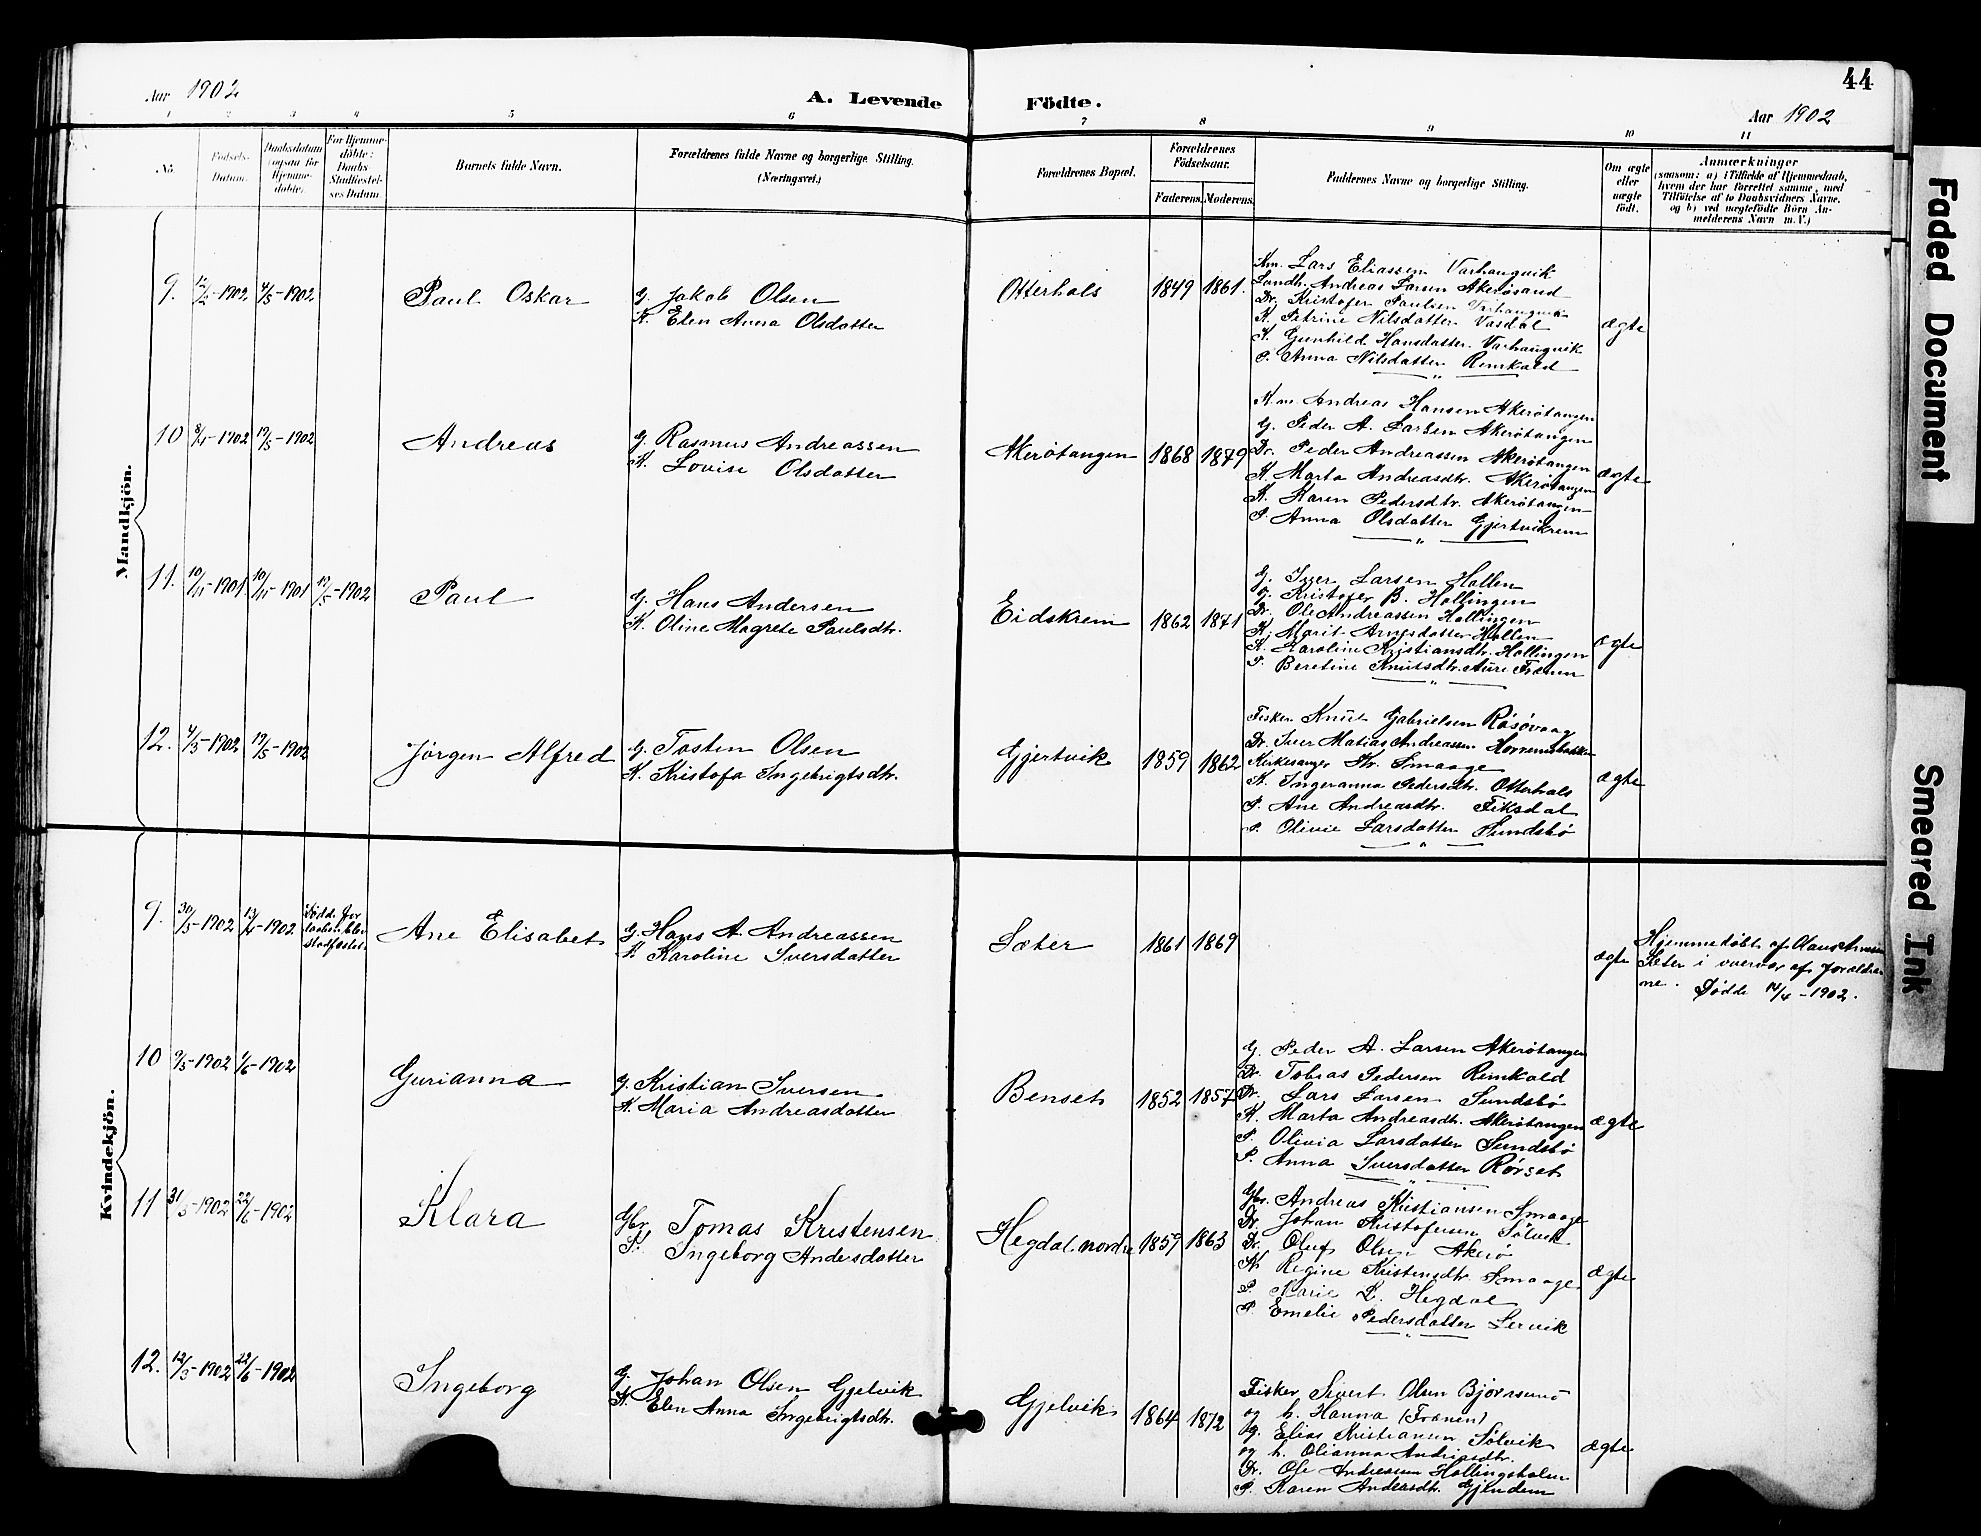 44
Aar 1902
A. Levende Födte.
Aar 1902
1 2 3 4 5 6 7 8 9 10 11
No.
Födsels-
Datum.
Daabsdatum
(ogsaa for
Hjemme-
döbte).
For Hjemme-
döbte:
Daabs
Stadfæstel-
ses Datum
Barnets fulde Navn.
Forældrenes fulde Navne og borgerlige Stilling.
(Næringsvei.)
Forældrenes Bopæl.
Forældrenes
Födselsaar.
Faderens. Moderens.
Faddernes Navne og borgerlige Stilling.
Om ægte
eller
uægte
födt.
Anmærkninger
(saasom: a) i Tilfælde af Hjemmedaab,
hvem der har forrettet samme, med
Tilföielse af to Daabsvidners Navne.
og b) ved uægtefödte Börn An-
melderens Navn m. V.)
Mandkjön.
9. 12/2-1902 4/5-1902 Paul Oskar
G. Jakob Olsen
K. Elen Anna Olsdatter
Otterhals 1849 1861.
Km. Lars Eliassen Varhaugvik
Landh. Andreas Larsen Akerøsand
Dr. Kristofer Paulsen Varhaugvik
K. Petrine Nilsdatter Vasdal
K. Gunhild Hansdatter Varhaugvik
P. Anna Nilsdatter Remkald
ægte
10 8/4-1902 19/5-1902 Andreas
G. Rasmus Andreassen
K. Lovise Olsdatter
Akerøtangen 1868 1879
Km. Andreas Hansen Akerøtangen
G. Peder A. Larsen Akerøtangen
Dr. Peder Andreassen Akerøtangen
K. Marta Andreasdtr. Akerøtangen
K. Karen Pedersdtr. Akerøtangen
P. Anna Olsdatter Gjertvikrem
ægte
11. 10/11-1901 10/11-1901 19/5-1902 Paul
G. Hans Andersen
K. Oline Magrete Paulsdtr.
Eidskrem 1862 1871
G. Iver Larsen Hollen
G. Kristofer B. Hollingen
Dr. Ole Andreassen Hollingen
K. Marit Arnesdatter Hollen
K. Karoline Kristiansdtr. Hollingen
P. Beretine Knutsdtr. Aure Frænen
ægte
12. 4/3-1902 19/5-1902 Jørgen Alfred
G. Tosten Olsen
K. Kristofa Ingebrigtsdtr.
Gjertvik 1859 1862
Fisker Knut Gabrielsen Røsøvaag
Dr. Iver Matias Andreassen
Kirkesanger Kr. Smaage
K. Ingeranna Pedersdtr. Otterhals
P. Ane Andreasdtr. Fiksdal
P. Olivie Larsdatter Sundsbø
ægte
Kvindekjön.
9. 30/3-1902 13/4-1902
Død før
daaben blev
stadfæstet
Ane Elisabet
G. Hans A. Andreassen
K. Karoline Iversdatter
Sæter 1861 1869
ægte
Hjemmedøbt af Olaus
Sæter i overvær af forældre-
ne. Døde 14/4-1902.
10 9/3-1902 1/6-1902 Gurianna
G. Kristian Iversen
K. Maria Andreasdatter
Benset 1852 1857
G. Peder A. Larsen Akerøtangen
Dr. Tobias Pedersen Remkald
Dr. Lars Larsen Sundsbø
K. Marta Andreasdtr. Akerøtangen
P. Olivia Larsdatter Sundsbø
P. Anna Iversdatter Rørset
ægte
11 31/3-1902 22/6-1902 Klara
Gbr. Tomas Kristensen
K. Ingeborg Andersdatter
Hegdal nordre 1859 1863
Gbr. Andreas Kristiansen Smaage
Dr. Johan Kristofersen Sølvik
Dr. Oluf Olsen Akerø
K. Regine Kristensdtr. Smaage
P. Marie L. Hegdal
P. Emelie Pedersdatter Lervik
ægte
12. 12/3-1902 22/6-1902 Ingeborg
G. Johan Olsen Gjelvik
K. Elen Anna Ingebrigtsdtr.
Gjelvik 1864 1872
Fisker Sivert Olsen Bjørnsund
og h. Hanna (Frænen)
G. Elias Kristiansen Sølvik
og h. Olianna Andreasdtr.
Dr. Ole Andreassen Hollingsholm
P. Karen Andreasdtr. Gjendem
ægte
Faded Document
Smeared Ink